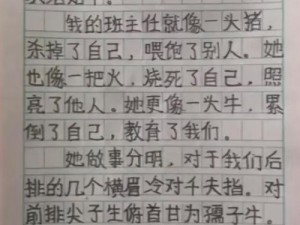 我的班主任就像一头猪，
杀掉了自己，喂饱了别人。她
也像一把火，烧死了自己，照
亮了他人。她更像一头牛，累
倒了自己，教育了我们。
她做事分明，对于我们后
排的几个横眉冷对千夫指。对
前排尖子生俯首甘为孺子牛。